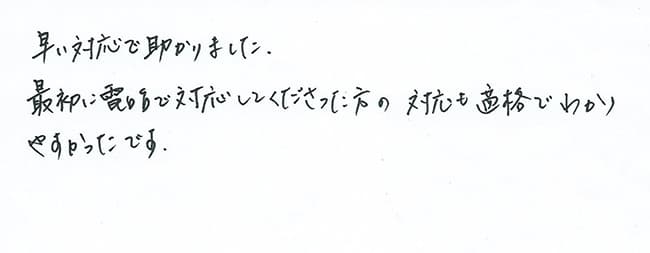 早い対応で助かりました.
最初に電話で対応してくださった方の 対応も適格でわかり
やすかったです.